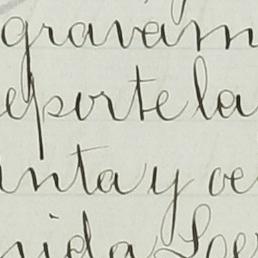 gravam
eporte la
nta y oc
nida Loe